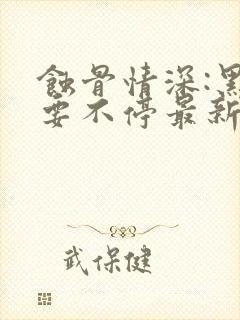 蝕骨情深:黑
要不停最新
武保健